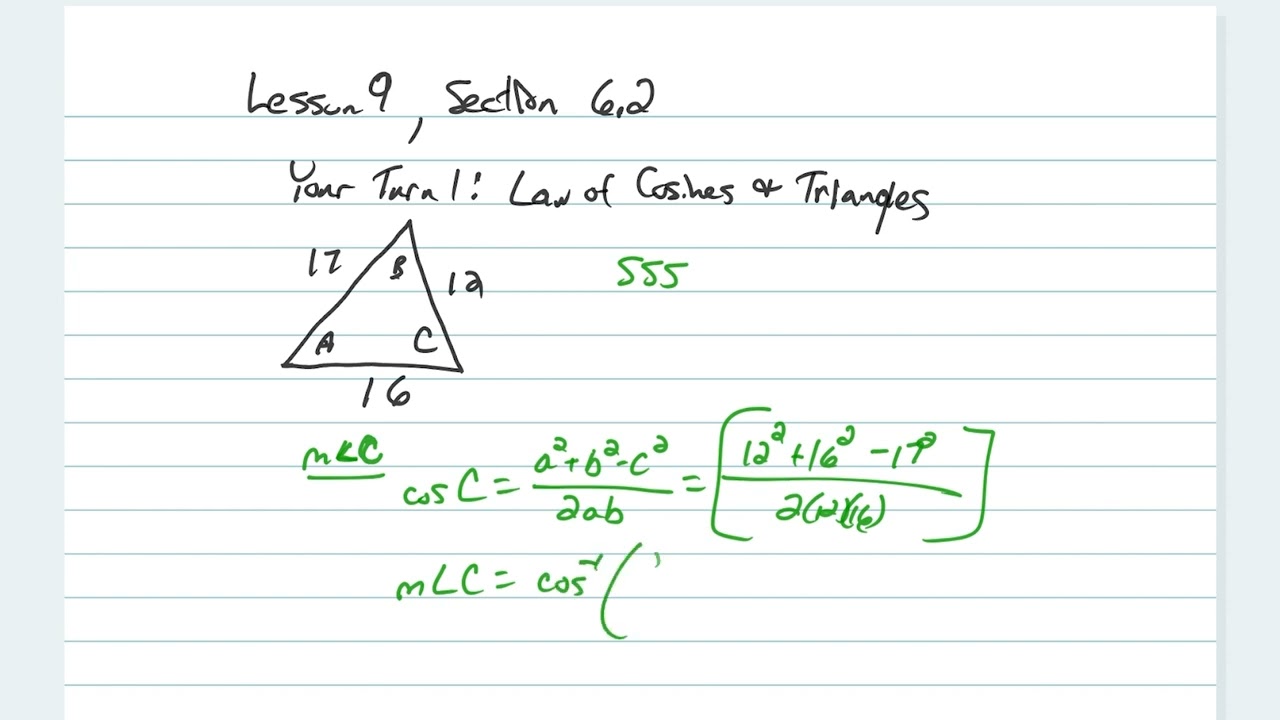 Lesson 9, Section 6.2
Your Turn 1: Law of Cosines & Triangles
17
B
12
SSS
A
C
16
m∠C
cos C = (a²+b²-c²)/(2ab) = [(12²+16²-17²)/(2(12)(16))]
m∠C = cos⁻¹(